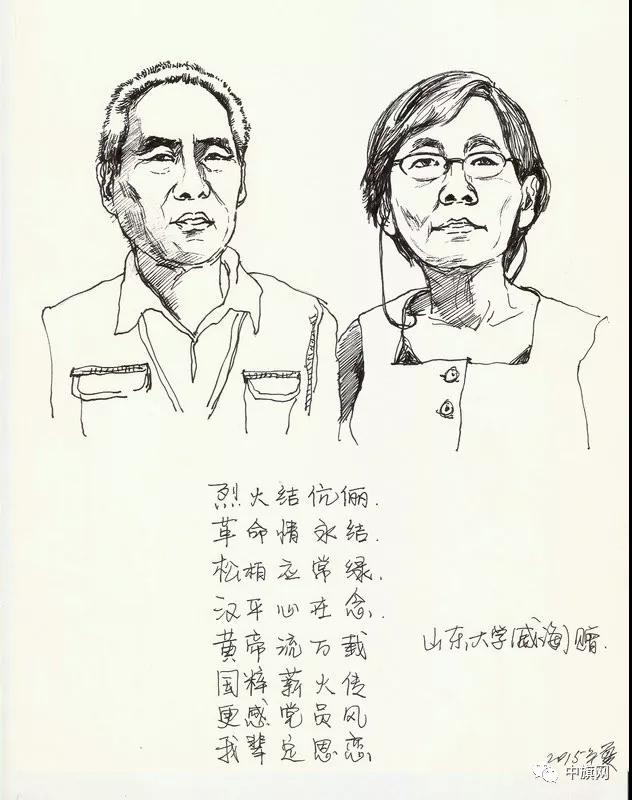 烈火结伉俪.
革命情永结.
松柏应常绿.
汉平心在念.
黄帝流万载
国粹薪火传
更感党员风
我辈定思恋
山东大学(威海)赠.
2015年夏
中旗网